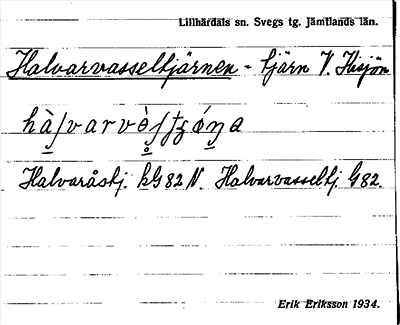 Lillhärdals sn. Svegs tg. Jämtlands län.
Halvarvasseltjärnen - tjärn V. Hisjön
Halvaråstj. kG82 N. Halvarvasseltj G82.
Erik Eriksson 1934.